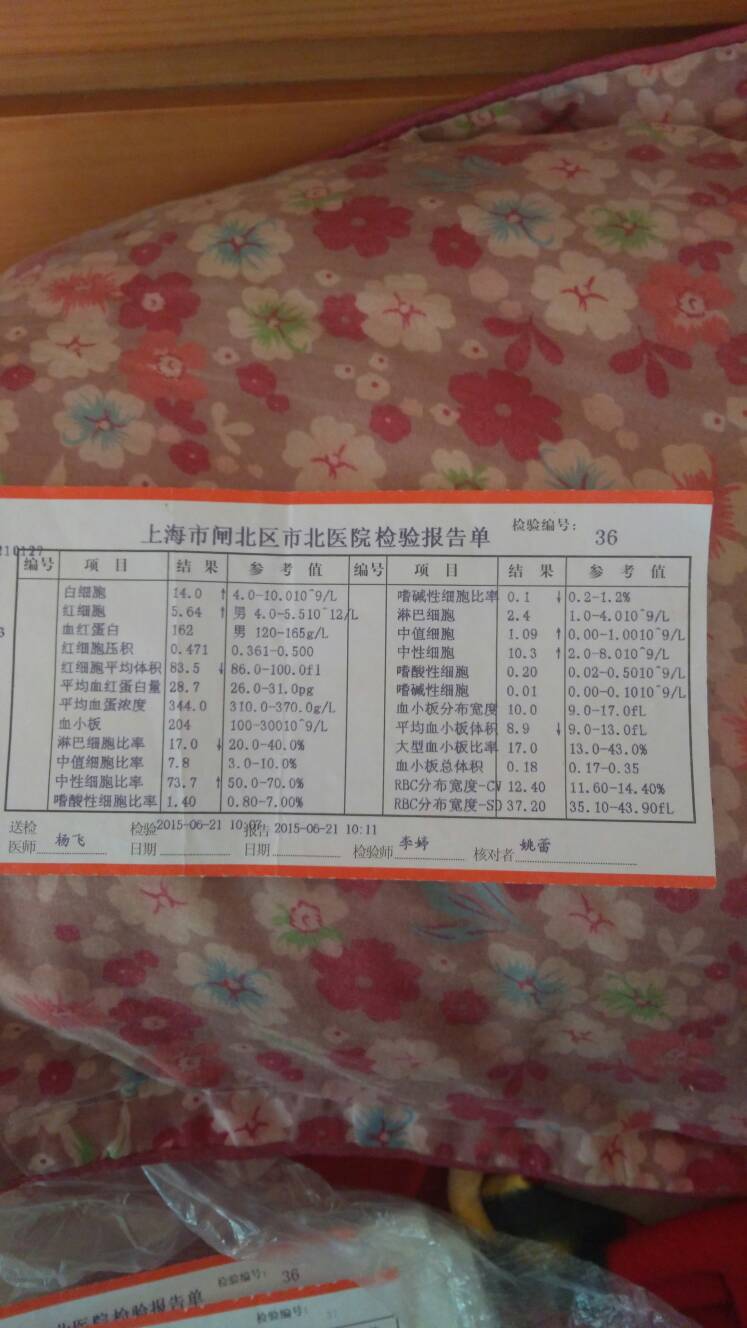 上海市闸北区市北医院检验报告单 检验编号: 36
编号 项 目 结 果 参 考 值 编号 项 目 结 果 参 考 值
白细胞 14.0 ↑ 4.0-10.010^9/L 嗜碱性细胞比率 0.1 ↓ 0.2-1.2%
红细胞 5.64 ↑ 男 4.0-5.510^12/L 淋巴细胞 2.4 1.0-4.010^9/L
血红蛋白 162 男 120-165g/L 中值细胞 1.09 ↑ 0.00-1.0010^9/L
红细胞压积 0.471 0.361-0.500 中性细胞 10.3 ↑ 2.0-8.010^9/L
红细胞平均体积 83.5 ↓ 86.0-100.0fl 嗜酸性细胞 0.20 0.02-0.5010^9/L
平均血红蛋白量 28.7 26.0-31.0pg 嗜碱性细胞 0.01 0.00-0.1010^9/L
平均血蛋浓度 344.0 310.0-370.0g/L 血小板分布宽度 10.0 9.0-17.0fL
血小板 204 100-30010^9/L 平均血小板体积 8.9 ↓ 9.0-13.0fL
淋巴细胞比率 17.0 ↓ 20.0-40.0% 大型血小板比率 17.0 13.0-43.0%
中值细胞比率 7.8 3.0-10.0% 血小板总体积 0.18 0.17-0.35
中性细胞比率 73.7 ↑ 50.0-70.0% RBC分布宽度-CV 12.40 11.60-14.40%
嗜酸性细胞比率 1.40 0.80-7.00% RBC分布宽度-SD 37.20 35.10-43.90fL
送检医师 杨飞 检验日期 2015-06-21 10:07 报告日期 2015-06-21 10:11 检验师 李婷 核对者 姚蕾
检验编号: 36
北医院检验报告单 检验编号: